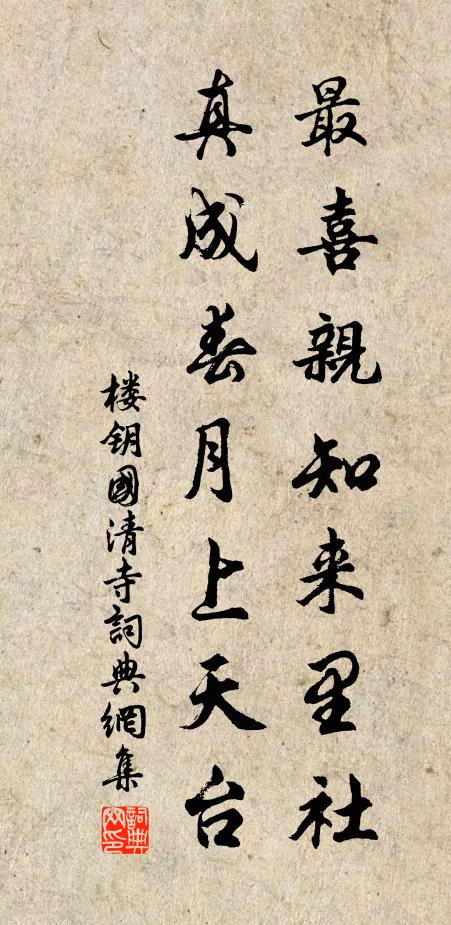 最喜親知来里社
真成春月上天台
楼钥國清寺詞典網集
詞典網印